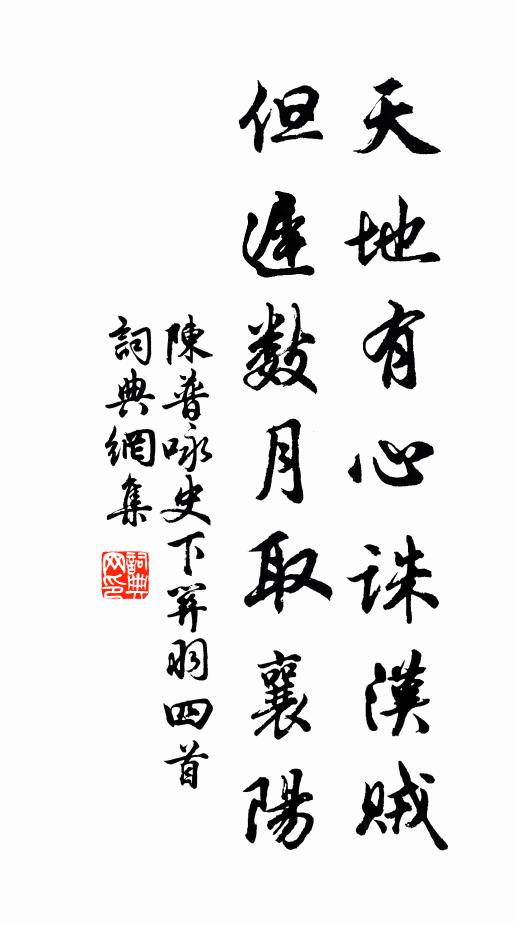 天地有心誅漢賊
但遲數月取襄陽
陳普咏史下關羽四首
詞典網集
詞典網印